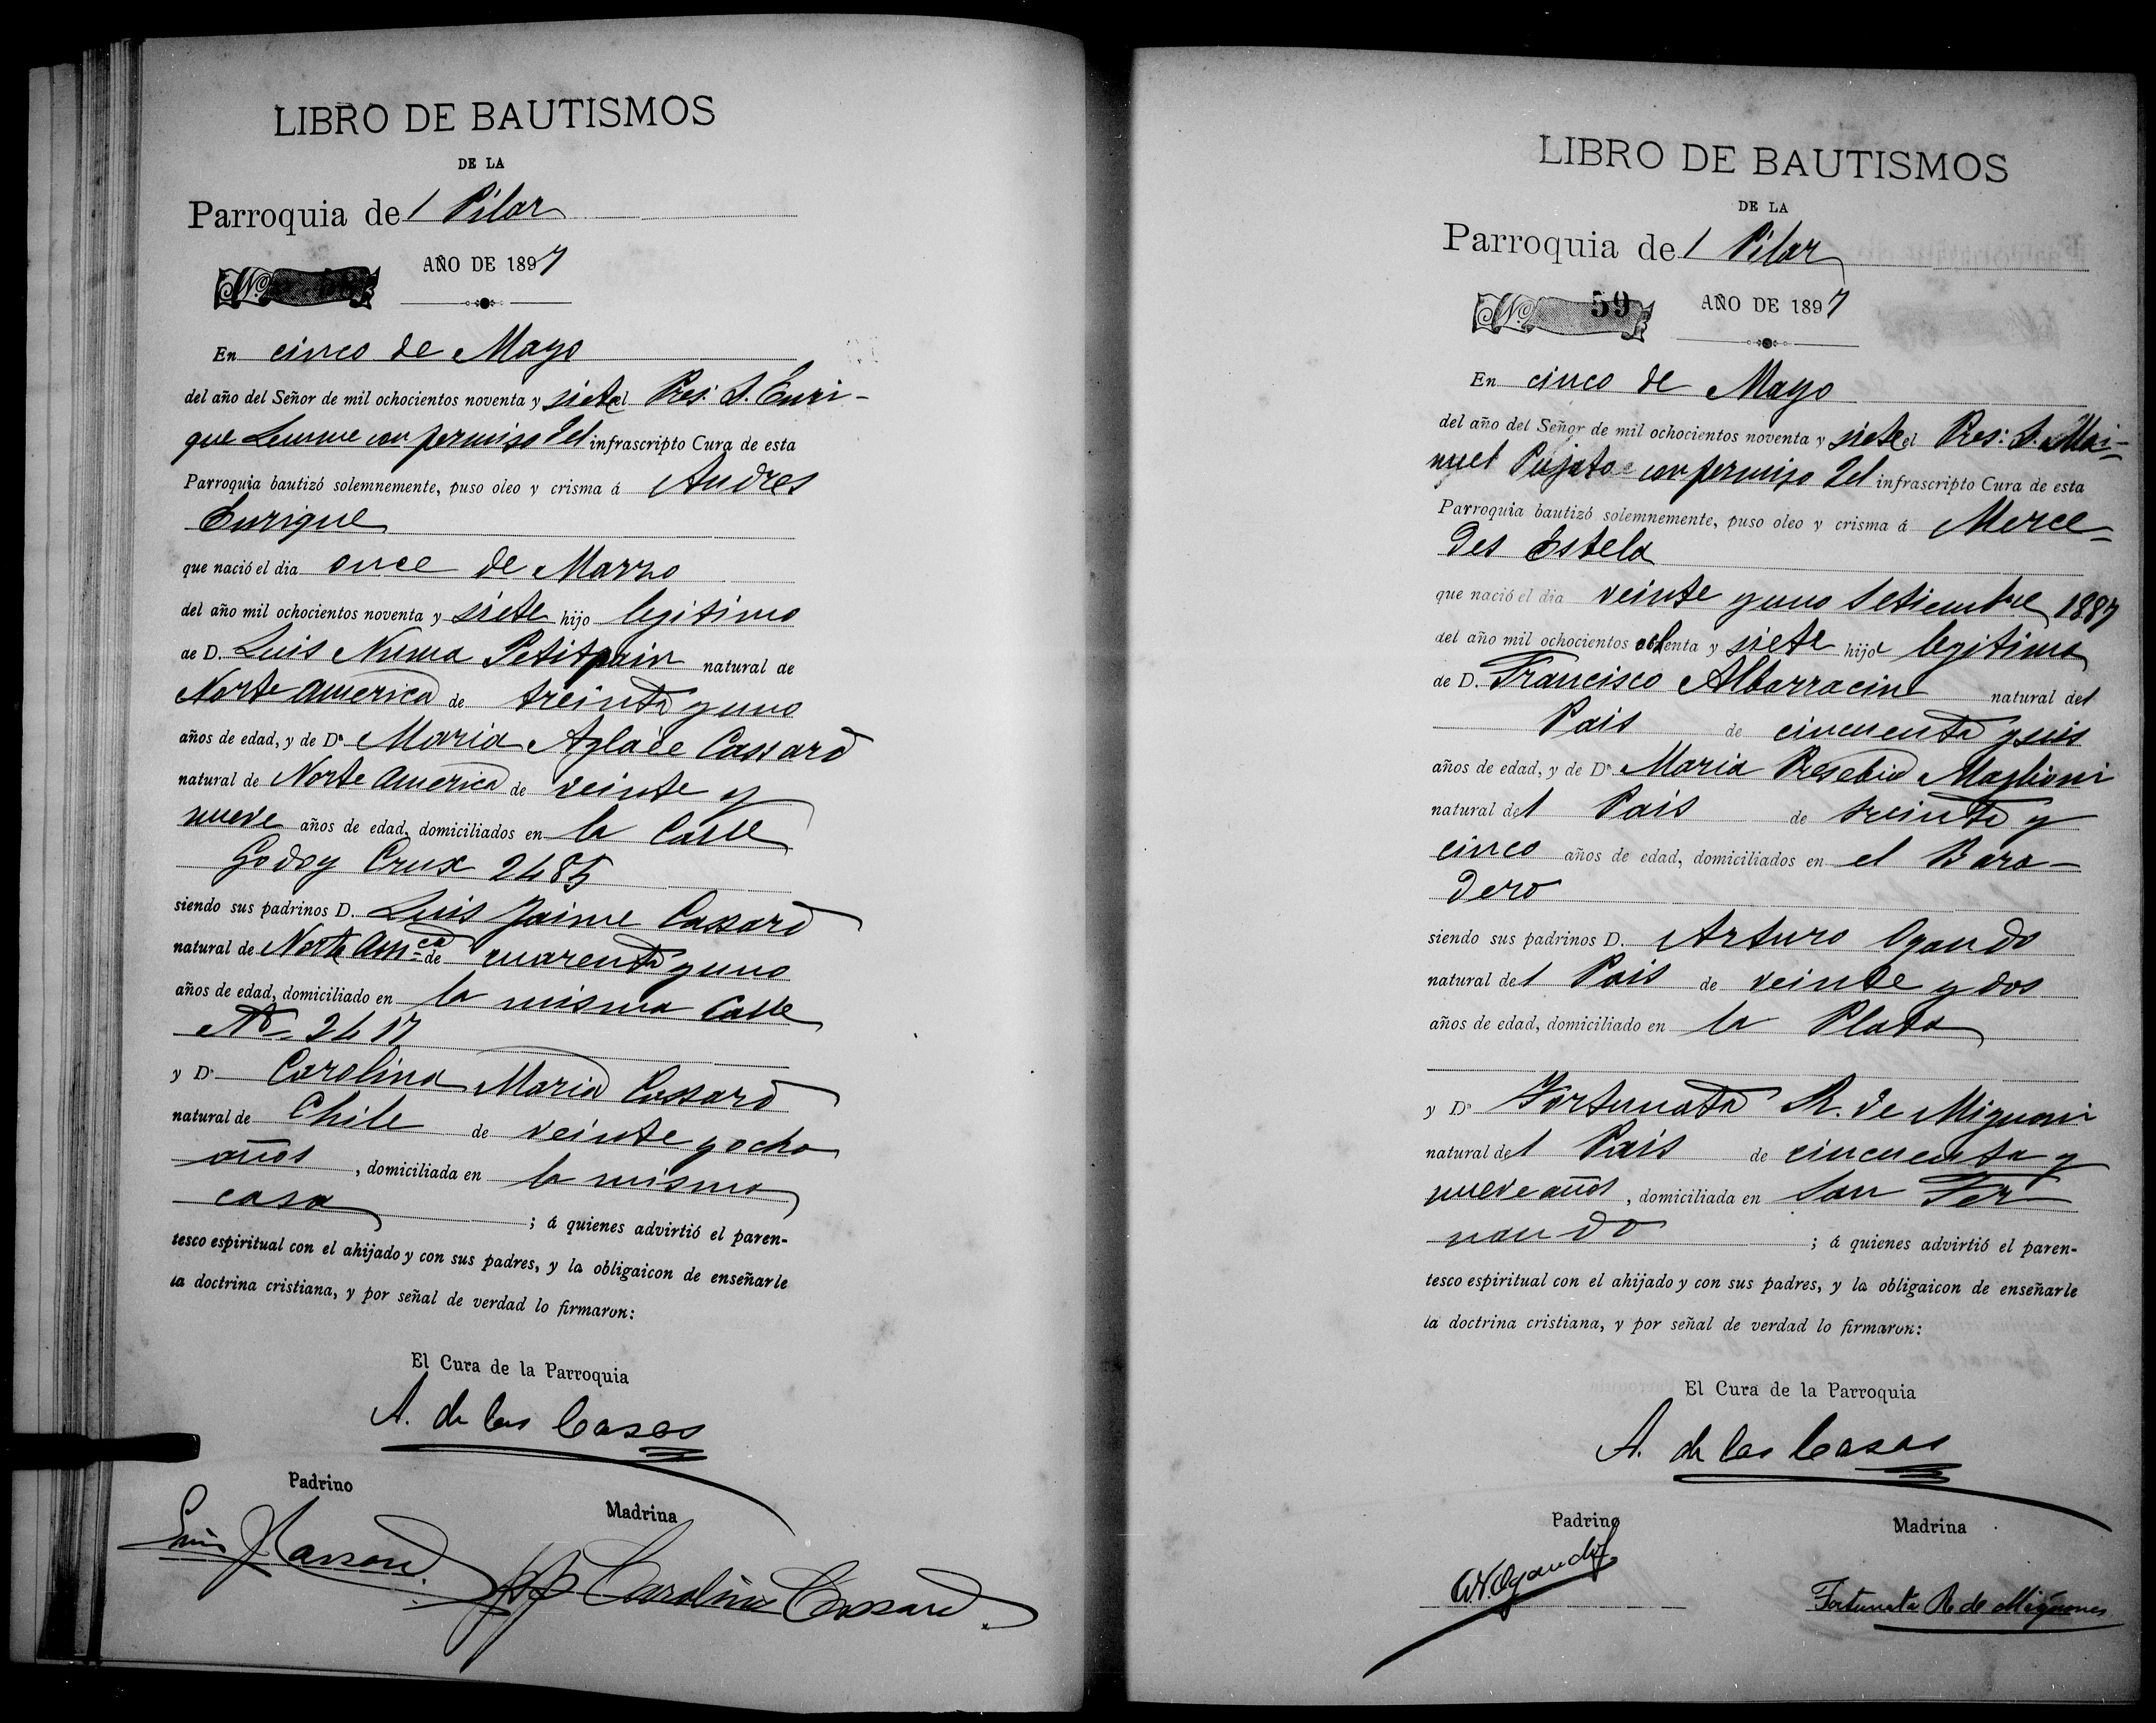 LIBRO DE BAUTISMOS
DE LA
Parroquia del Pilar
AÑO DE 1897
Nº 58
En cinco de Mayo
del año del Señor de mil ochocientos noventa y siete el Pres. D. Enri-
que con permiso del infrascripto Cura de esta
Parroquia bautizó solemnemente, puso oleo y crisma á Andres
Enrique
que nació el dia once de Marzo
del año mil ochocientos noventa y siete hijo legitimo
de D. Luis Numa Petitpain natural de
Norte America de treinta y uno
años de edad, y de Dª Maria Aglaée Cassard
natural de Norte America de veinte y
nueve años de edad, domiciliados en la Calle
Godoy Crux 2485
siendo sus padrinos D. Luis Jaime Cassard
natural de Norte Amca de cuarenta y uno
años de edad, domiciliado en la misma Calle
Nº 2417
y Dª Carolina Maria Cassard
natural de Chile de veinte y ocho
años, domiciliada en la misma
casa ; á quienes advirtió el paren-
tesco espiritual con el ahijado y con sus padres, y la obligaicon de enseñarle
la doctrina cristiana, y por señal de verdad lo firmaron:
El Cura de la Parroquia
A. de las Casas
Padrino
Madrina
Luis J Cassard
pp Carolina Cassard.
LIBRO DE BAUTISMOS
DE LA
Parroquia del Pilar
Nº 59 AÑO DE 1897
En cinco de Mayo
del año del Señor de mil ochocientos noventa y siete el Pres. D. Ma-
nuel Pujato con permiso del infrascripto Cura de esta
Parroquia bautizó solemnemente, puso oleo y crisma á Merce-
des Estela
que nació el dia veinte y uno Setiembre 1887
del año mil ochocientos ochenta y siete hija legitima
de D. Francisco Albarracin natural del
Pais de cincuenta y seis
años de edad, y de Dª Maria Presebia Maglioni
natural del Pais de treinta y
cinco años de edad, domiciliados en el Bara-
dero
siendo sus padrinos D. Arturo Ogando
natural del Pais de veinte y dos
años de edad, domiciliado en la Plata
y Dª Fortunata R. de Mignoni
natural del Pais de cincuenta y
nueve años, domiciliada en San Fer-
nando ; á quienes advirtió el paren-
tesco espiritual con el ahijado y con sus padres, y la obligaicon de enseñarle
la doctrina cristiana, y por señal de verdad lo firmaron:
El Cura de la Parroquia
A. de las Casas
Padrino
Madrina
Ogando
Fortunata R. de Mignones